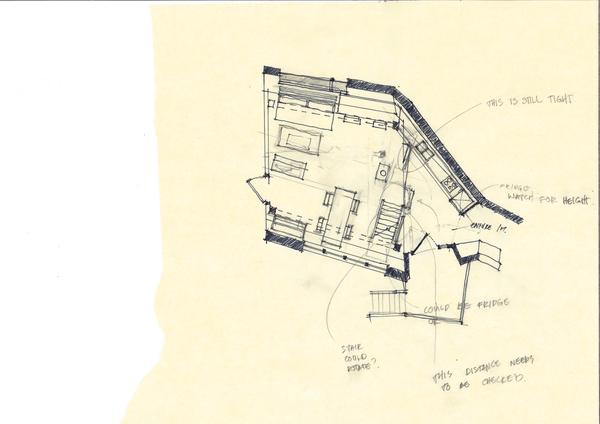 THIS IS STILL TIGHT.
FRIDGE,
WATCH FOR HEIGHT.
COULD BE FRIDGE
STAIR
COULD
ROTATE?
THIS DISTANCE NEEDS
TO BE CHECKED.